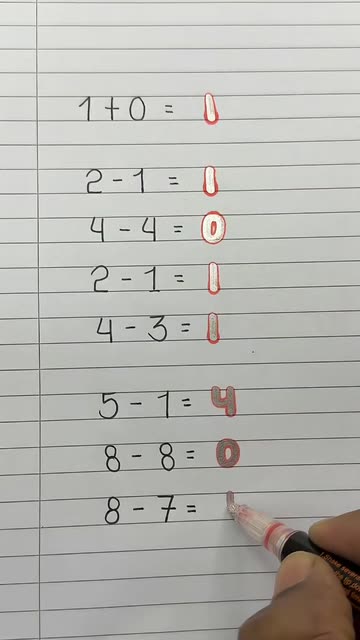 1 + 0 = 1
2 - 1 = 1
4 - 4 = 0
2 - 1 = 1
4 - 3 = 1
5 - 1 = 4
8 - 8 = 0
8 - 7 =